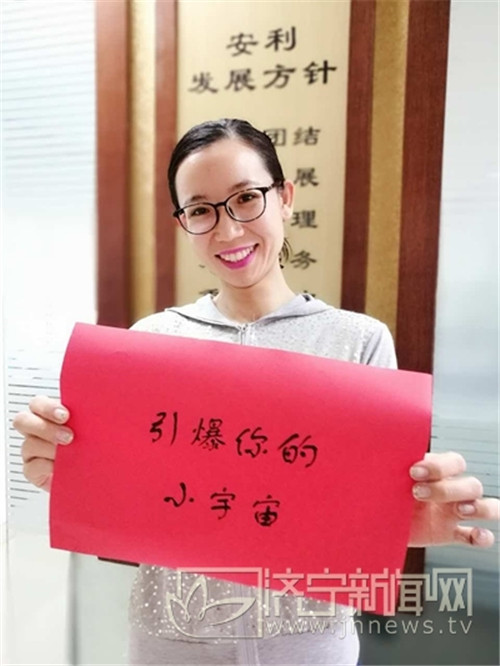 安利
发展方针
团结
展
理
务
引爆你的
小宇宙
济宁新闻网
www.jnnews.tv